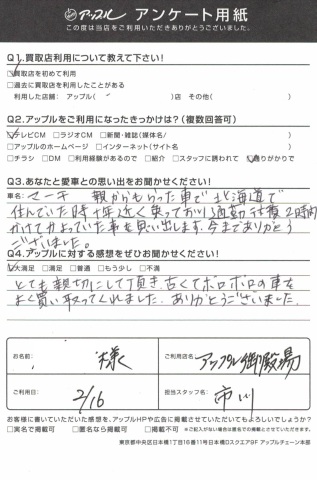 アップル アンケート用紙
この度は当店をご利用いただきありがとうございました。
Q1.買取店利用について教えて下さい!
買取店を初めて利用
□過去に買取店を利用したことがある
利用した店舗: アップル( )店 その他( )
Q2.アップルをご利用になったきっかけは?(複数回答可)
テレビCM □ラジオCM □新聞・雑誌(媒体名/ )
□アップルのホームページ □インターネット(サイト名 )
□チラシ □DM □利用経験があるので □紹介 □スタッフに誘われて 通りがかりで
Q3.あなたと愛車との思い出をお聞かせください!
車名: マーチ 親からもらった車で北海道で
住んでいた時十年近く乗っており通勤往復2時間
かけてかよっていた事を思い出します。今までありがとう
ございました。
Q4.アップルに対する感想をぜひお聞かせください!
大満足 □満足 □普通 □もう少し □不満
とても親切にして頂き、古くてボロボロの車を
よく買い取ってくれました。ありがとうございました。
お名前: 様
ご利用店名: アップル御殿場
ご利用日: 2/16
担当スタッフ名: 市川
お客様に書いていただいた感想を、アップルHPや広告に掲載させていただいてもよろしいでしょうか?
□実名で掲載可 □匿名なら掲載可 □掲載不可 ※ご記入がない場合は匿名で掲載とさせていただきます。
東京都中央区日本橋1丁目16番11号日本橋Dスクエア9F アップルチェーン本部